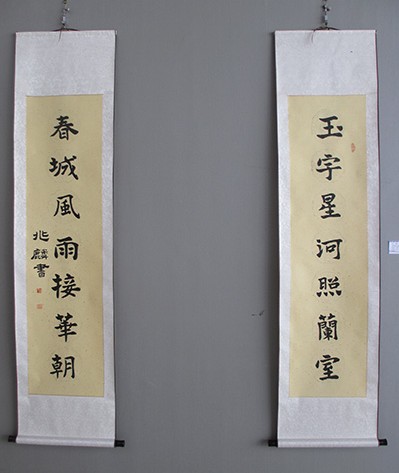 玉宇星河照蘭室
春城風雨接華朝
兆麟書